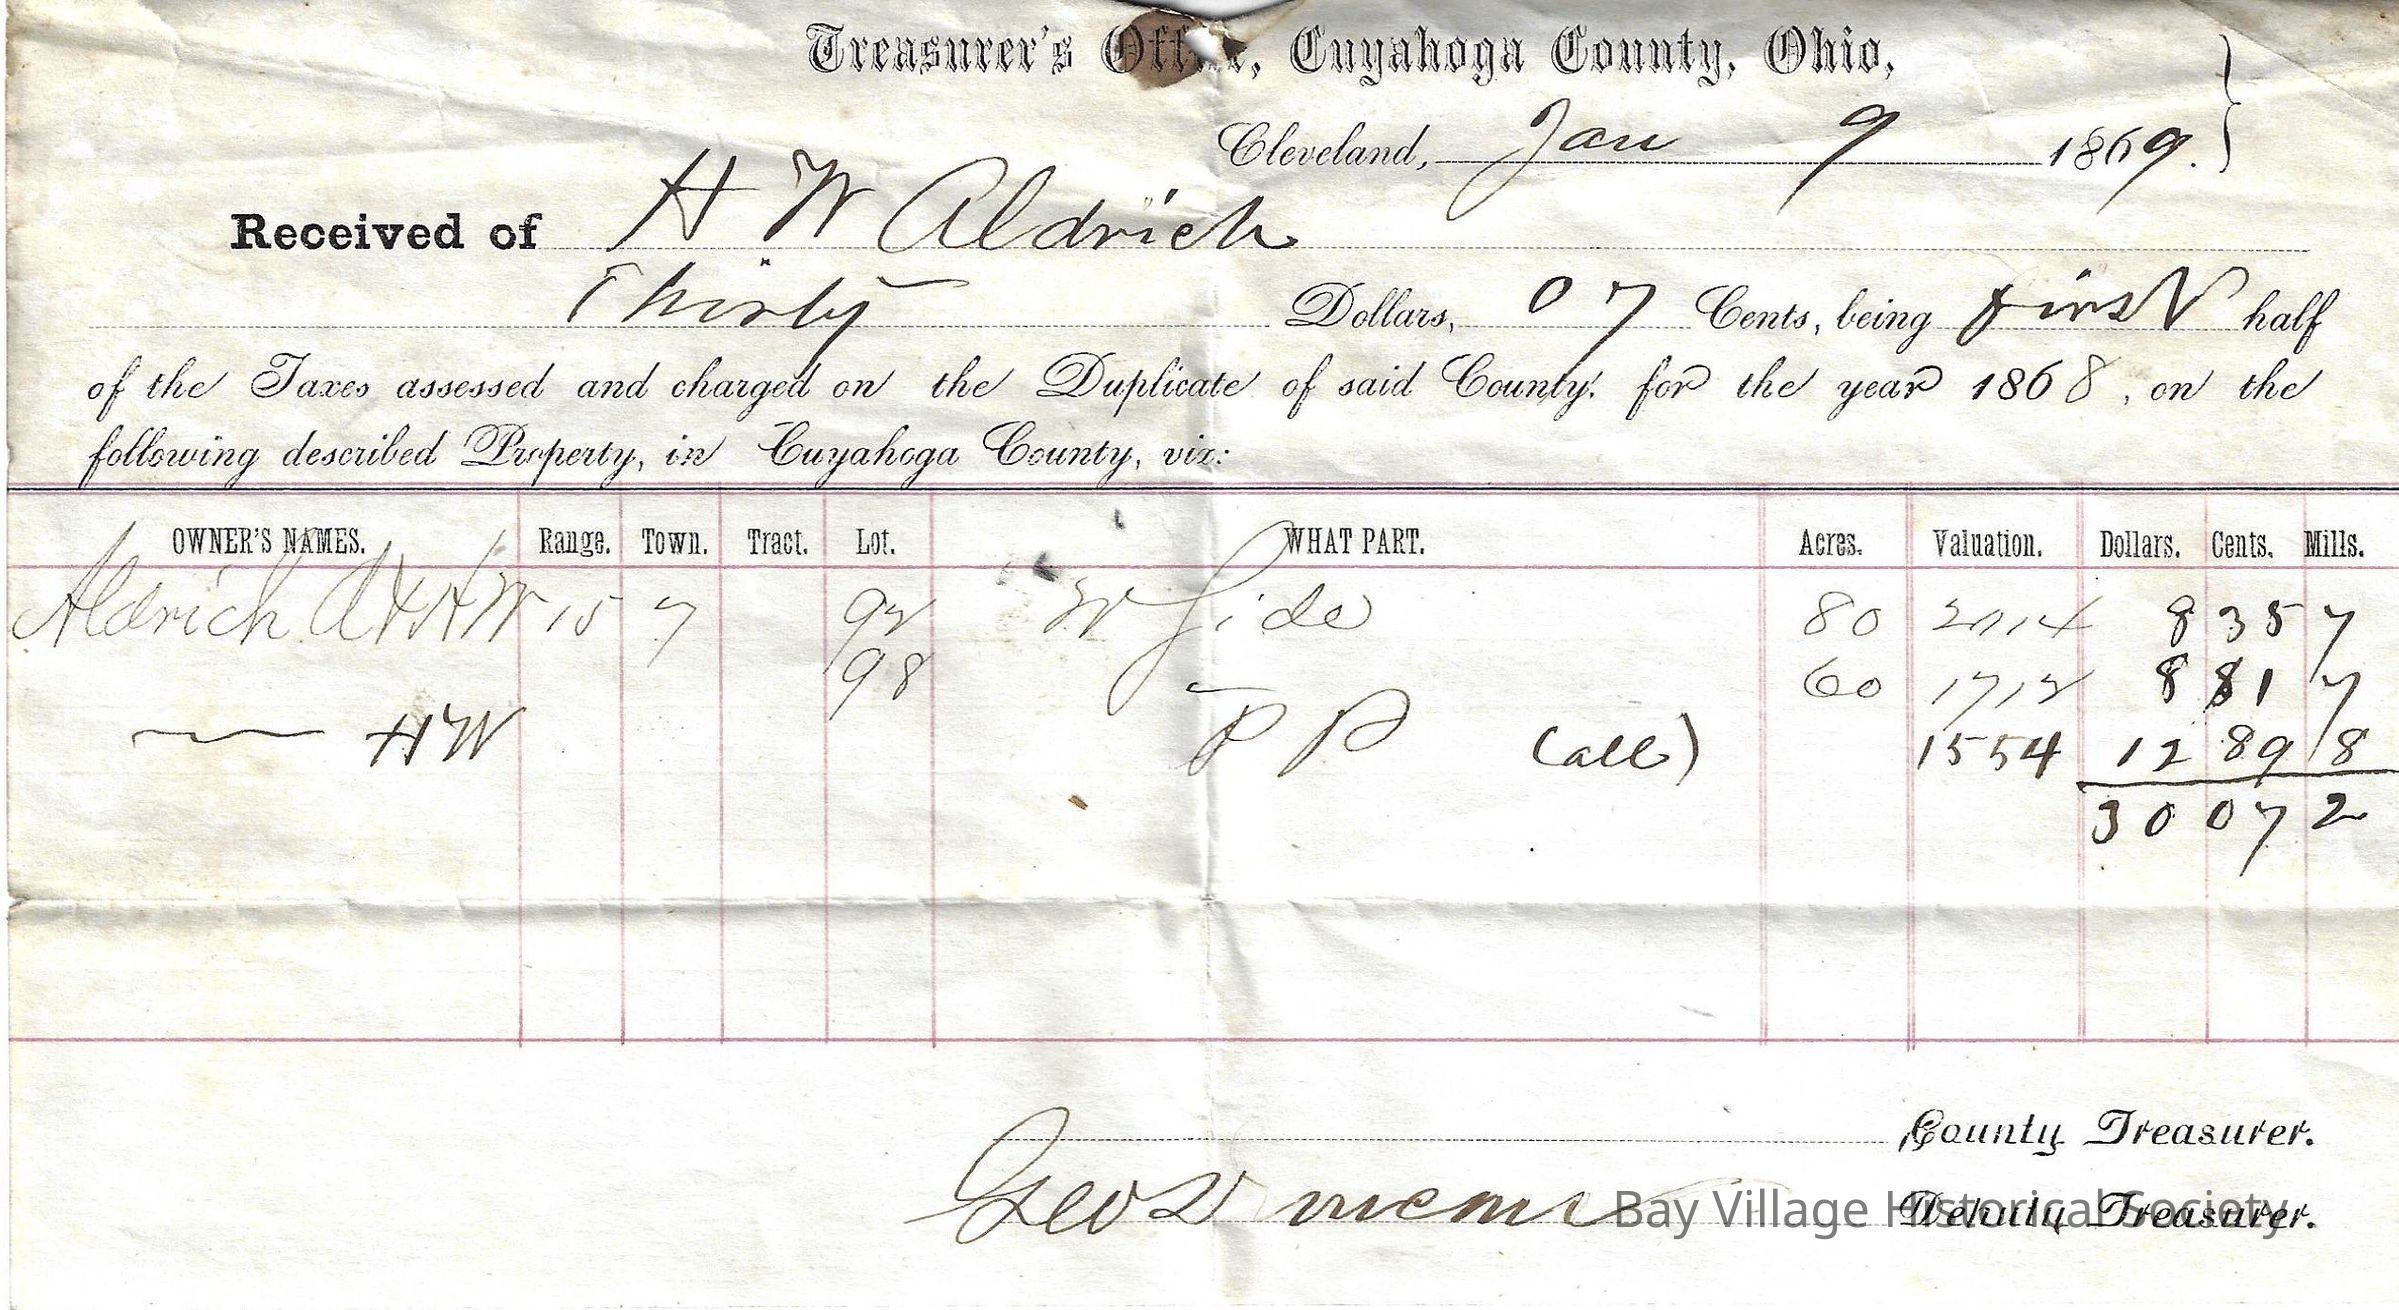 Treasurer's Office, Cuyahoga County, Ohio,
Cleveland, Jan 9 1869.
Received of H W Aldrich
Thirty Dollars, 07 Cents, being first half
of the Taxes assessed and charged on the Duplicate of said County, for the year 1868, on the
following described Property, in Cuyahoga County, viz:
OWNER'S NAMES. Range. Town. Tract. Lot. WHAT PART. Acres. Valuation. Dollars. Cents. Mills.
Aldrich 15 7 92 W Side 80 8 35 7
98 60 1712 8 81 7
— HW P P (all) 1554 12 89 8
30 07 2
County Treasurer.
Geo Deputy Treasurer.
Bay Village Historical Society